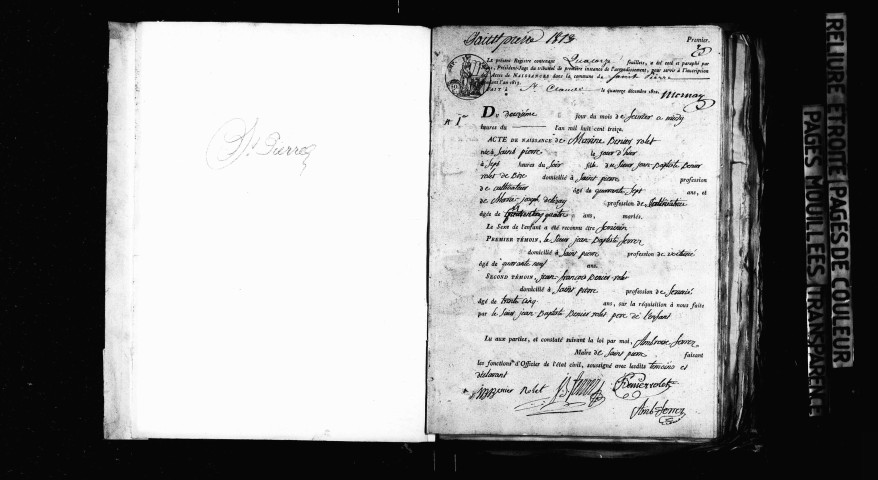 St Pierre
Saint pierre 1813
Premier.
Le présent Registre contenant feuillets, a été coté et paraphé par
Président-Juge du tribunal de première instance de l'arrondissement, pour servir à l'inscription
des Actes de NAISSANCES dans la commune de Saint Pierre
pendant l'an 1813.
FAIT à St Claude le quatorze décembre 1812. Monnay
N° 1er
DU deuxième jour du mois de Janvier a midy
heures du l'an mil huit cent treize.
ACTE DE NAISSANCE de Marine Benier rolet
née à Saint pierre le jour d'hier
à Sept heures du Soir fille du Sieur jean-Baptiste Benier
rolet de domicilié à Saint pierre profession
de cultivateur âgé de quarante Sept ans, et
de Marie joseph profession de
âgée de quatre ans, mariés.
Le Sexe de l'enfant a été reconnu être féminin
PREMIER TÉMOIN, le Sieur jean-Baptiste ferrez
domicilié à Saint pierre profession de
âgé de quarante neuf ans.
SECOND TÉMOIN, jean-françois Benier rolet
domicilié à Saint pierre profession de
âgé de trente cinq ans, sur la réquisition à nous faite
par le Sieur jean-Baptiste Benier rolet pere de l'enfant
Lu aux parties, et constaté suivant la loi par moi, Ambroise ferrez
Maire de Saint pierre faisant
les fonctions d'Officier de l'état civil, soussigné avec lesdits temoins et
déclarant
Benier Rolet
Benier rolet
Amb ferrez
RELIURE ETROITE
PAGES DE COULEUR
PAGES MOUILLEES
TRANSPARENCE